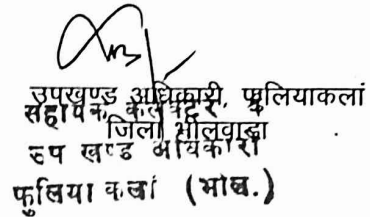 उपखण्ड अधिकारी, फुलियाकलां
सहायक कलेक्टर एवं
जिला भीलवाड़ा
उप खण्ड अधिकारी
फुलिया कलां (भील.)